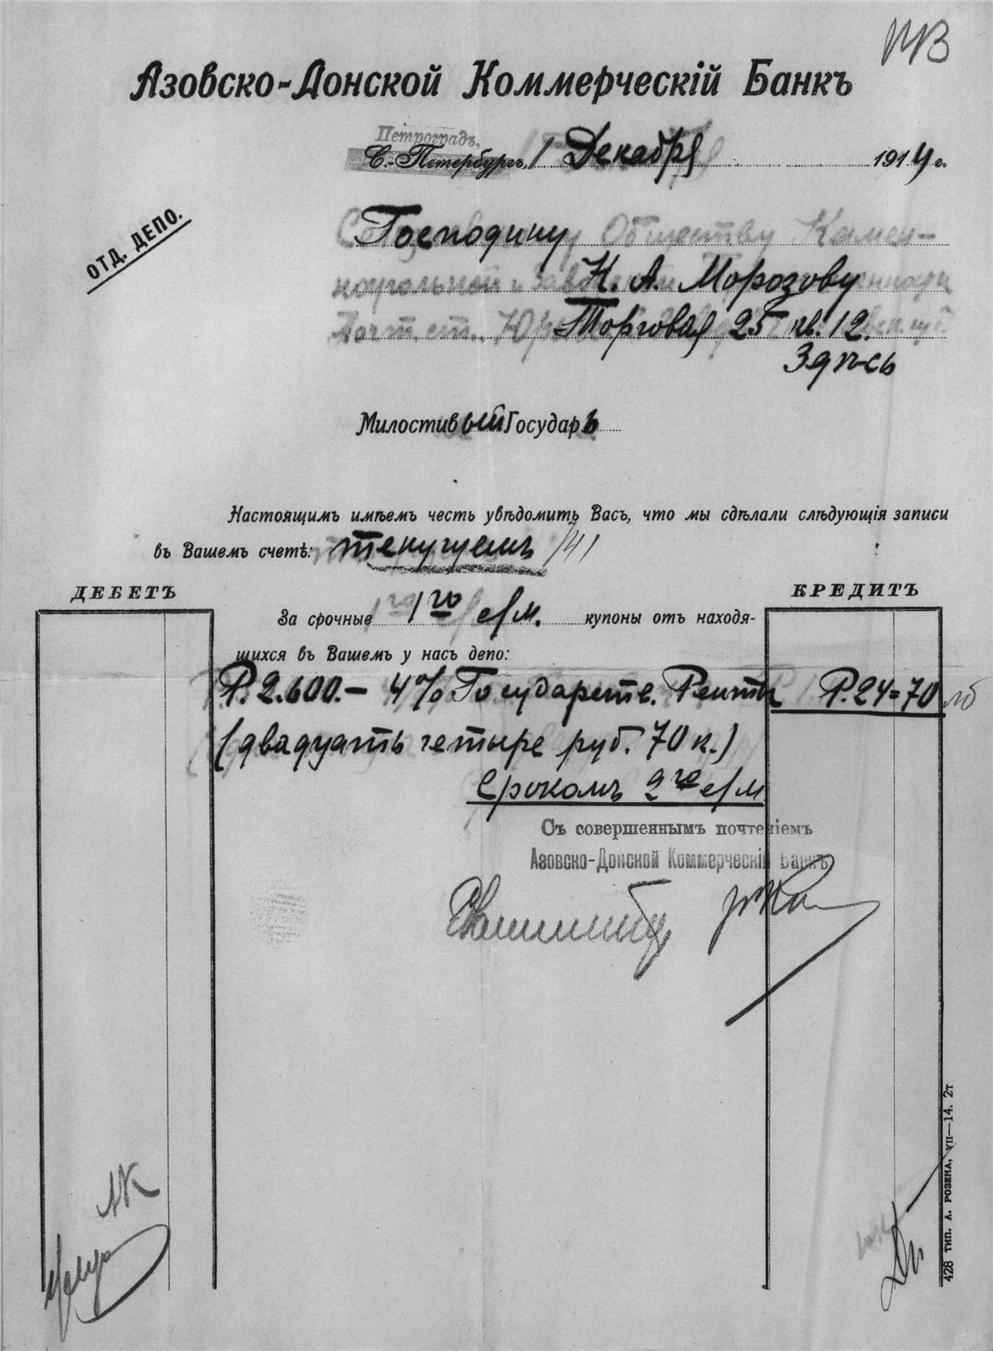 Азовско-Донской Коммерческій Банкъ
Петроградъ,
С.-Петербургъ, 1 Декабря 1914 г.
ОТД. ДЕПО.
Господину
Н. А. Морозову
Торговая 25 кв. 12.
Здѣсь
Милостивый Государь
Настоящимъ имѣемъ честь увѣдомить Васъ, что мы сдѣлали слѣдующія записи
въ Вашемъ счетѣ: текущемъ
ДЕБЕТЪ
КРЕДИТЪ
За срочные 1го с/м. купоны отъ находя-
щихся въ Вашемъ у насъ депо:
Р. 2.600.- 4% Государств. Рента Р. 24=70
(двадцать четыре руб. 70 к.)
Срокомъ 2го с/м
Съ совершеннымъ почтеніемъ
Азовско-Донской Коммерческій Банкъ
428 ТИП. А. РОЗЕНА, VII—14. 2т